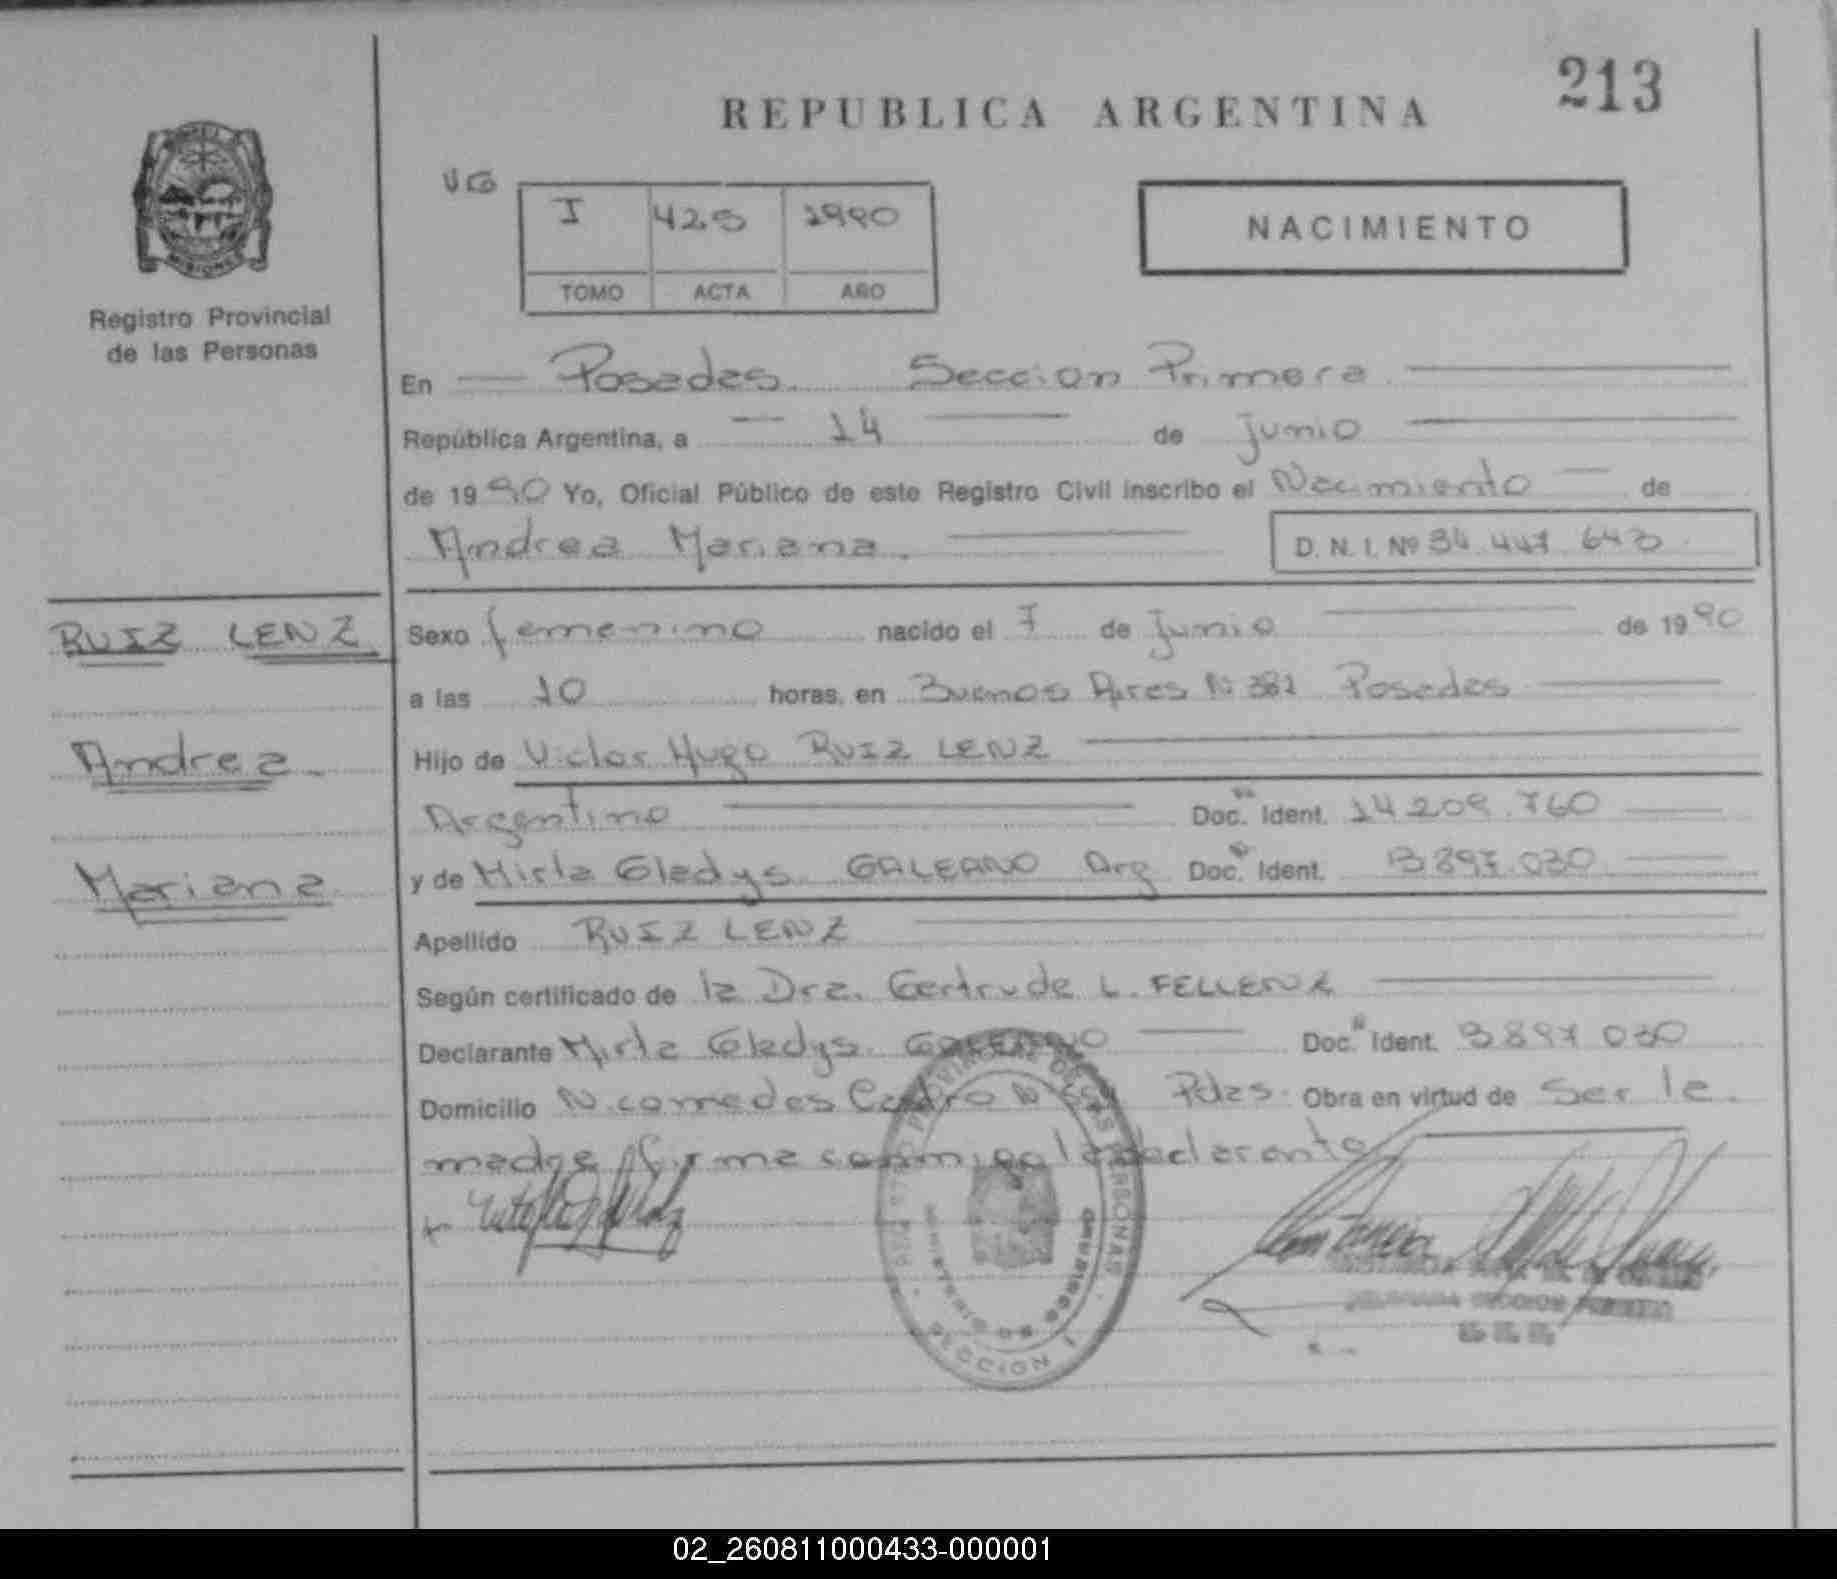 213
REPUBLICA ARGENTINA
MISIONES
Registro Provincial
de las Personas
UG
I 425 1990
TOMO ACTA AÑO
NACIMIENTO
En Posadas. Seccion Primera
República Argentina, a 14 de junio
de 1990 Yo, Oficial Público de este Registro Civil inscribo el Nacimiento de
Andrea Mariana.
D. N. I. Nº 34.447.640
RUIZ LENZ
Andrea
Mariana
Sexo femenino nacido el 7 de junio de 1990
a las 10 horas, en Buenos Aires N: 381 Posadas
Hijo de Victor Hugo RUIZ LENZ
Argentino Doc. Ident. 14.209.760
y de Mirta Gladys GALEANO Arg Doc. Ident. 13.897.030
Apellido RUIZ LENZ
Según certificado de la Dra. Gertrude L. FELLENZ
Declarante Mirta Gladys GALEANO Doc. Ident. 13.897.030
Domicilio Nicomedes Castro N Pdas. Obra en virtud de Ser la
madre firma conmigo la declarante
REGISTRO PROVINCIAL DE LAS PERSONAS
MINISTERIO DE GOBIERNO
SECCION I
DELEGADA SECCION PRIMERA
02_260811000433-000001